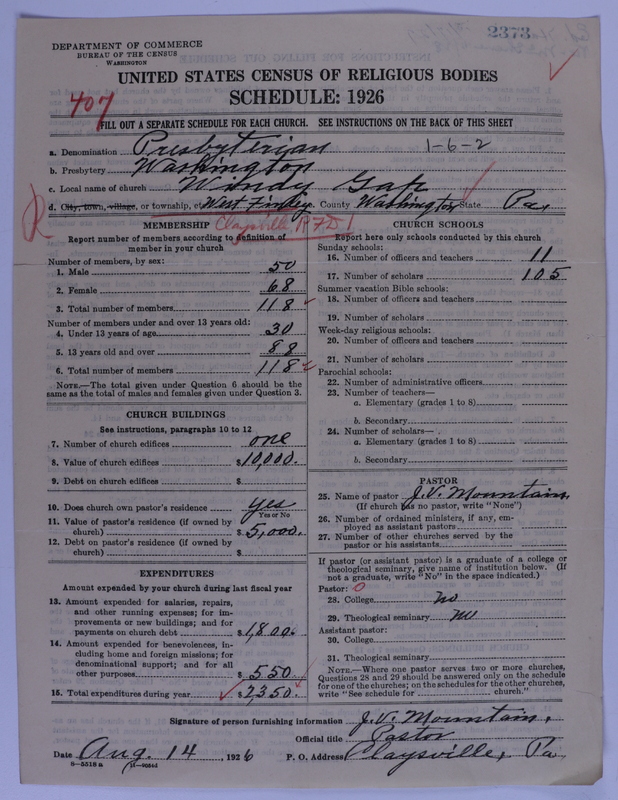 2373
DEPARTMENT OF COMMERCE
BUREAU OF THE CENSUS
WASHINGTON
UNITED STATES CENSUS OF RELIGIOUS BODIES
SCHEDULE: 1926
407
FILL OUT A SEPARATE SCHEDULE FOR EACH CHURCH. SEE INSTRUCTIONS ON THE BACK OF THIS SHEET
a. Denomination Presbyterian 1-6-2
b. Presbytery Washington
c. Local name of church Windy Gap
d. City, town, village, or township, etc. West Finley. County Washington State Pa.
Claysville RFD 1
MEMBERSHIP
Report number of members according to definition of
member in your church
Number of members, by sex:
1. Male 50
2. Female 68
3. Total number of members 118
Number of members under and over 13 years old:
4. Under 13 years of age 30
5. 13 years old and over 88
6. Total number of members 118
NOTE.—The total given under Question 6 should be
same as the total of males and females given under Question 3.
CHURCH BUILDINGS
See instructions, paragraphs 10 to 12
7. Number of church edifices one
8. Value of church edifices $10,000.
9. Debt on church edifices $
10. Does church own pastor's residence yes
Yes or No
11. Value of pastor's residence (if owned by
church) $5,000.
12. Debt on pastor's residence (if owned by
church) $
EXPENDITURES
Amount expended by your church during last fiscal year
13. Amount expended for salaries, repairs,
and other running expenses; for im-
provements or new buildings; and for
payments on church debt $1,800.
14. Amount expended for benevolences, in-
cluding home and foreign missions; for
denominational support; and for all
other purposes $550
15. Total expenditures during year $2,350.
CHURCH SCHOOLS
Report here only schools conducted by this church
Sunday schools:
16. Number of officers and teachers 11
17. Number of scholars 105
Summer vacation Bible schools:
18. Number of officers and teachers
19. Number of scholars
Week-day religious schools:
20. Number of officers and teachers
21. Number of scholars
Parochial schools:
22. Number of administrative officers
23. Number of teachers—
a. Elementary (grades 1 to 8)
b. Secondary
24. Number of scholars—
a. Elementary (grades 1 to 8)
b. Secondary
PASTOR
25. Name of pastor J.V. Mountain,
(If church has no pastor, write "None")
26. Number of ordained ministers, if any, em-
ployed as assistant pastors
27. Number of other churches served by the
pastor or his assistants
If pastor (or assistant pastor) is a graduate of a college or
theological seminary, give name of institution below. (If
not a graduate, write "No" in the space indicated.)
Pastor: 0
28. College no
29. Theological seminary no
Assistant pastor:
30. College
31. Theological seminary
NOTE.—Where one pastor serves two or more churches,
Questions 28 and 29 should be answered only on the schedule
for one of the churches; on the schedules for the other churches,
write "See schedule for church."
Signature of person furnishing information J.V. Mountain,
Official title Pastor
Date Aug. 14, 1926 P. O. Address Claysville, Pa.
8—5518 a